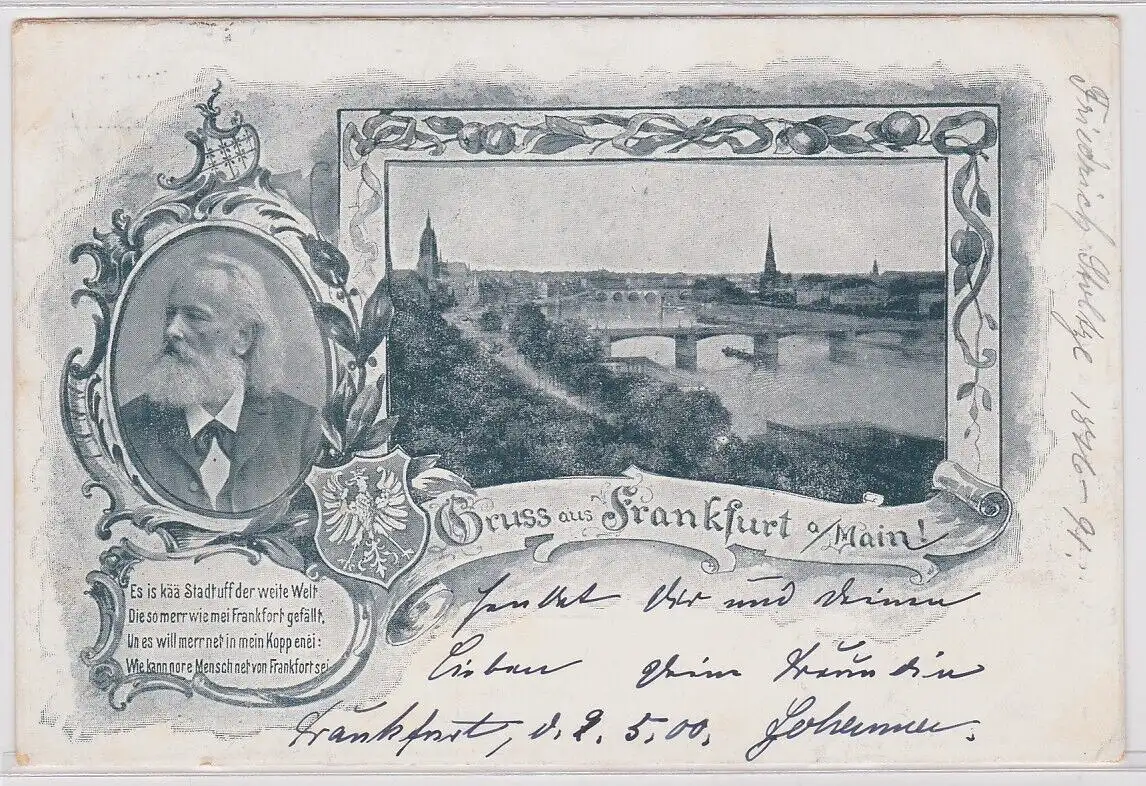 Friedrich Stoltze 1816–91.
Gruss aus Frankfurt a/Main!
Es is kää Stadt uff der weite Welt
Die so merr wie mei Frankfort gefällt,
Un es will merr net in mein Kopp enei:
Wie kann nore Mensch net von Frankfort sei
sendet dir und deinen
Lieben deine Freundin
Frankfurt, d. 2. 5.00. Johanna.